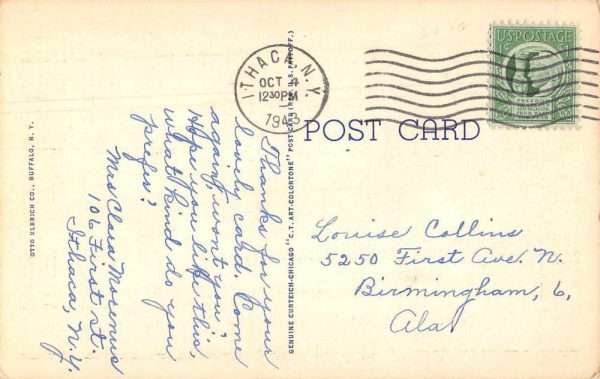 OTTO ULBRICH CO., BUFFALO, N. Y.
Thanks for your
lovely card. Come
again, won't you?
Hope you like this,
what kind do you
prefer?
Mrs Clara
106 First st.
Ithaca, N.Y.
GENUINE CURTEICH-CHICAGO "C.T. ART-COLORTONE" POST CARD (REG. U.S. PAT. OFF.)
ITHACA, N.Y.
OCT 4
12 30 PM
1943
U.S. POSTAGE
FREEDOM
POST CARD
Louise Collins
5250 First Ave. N.
Birmingham, 6,
Ala.